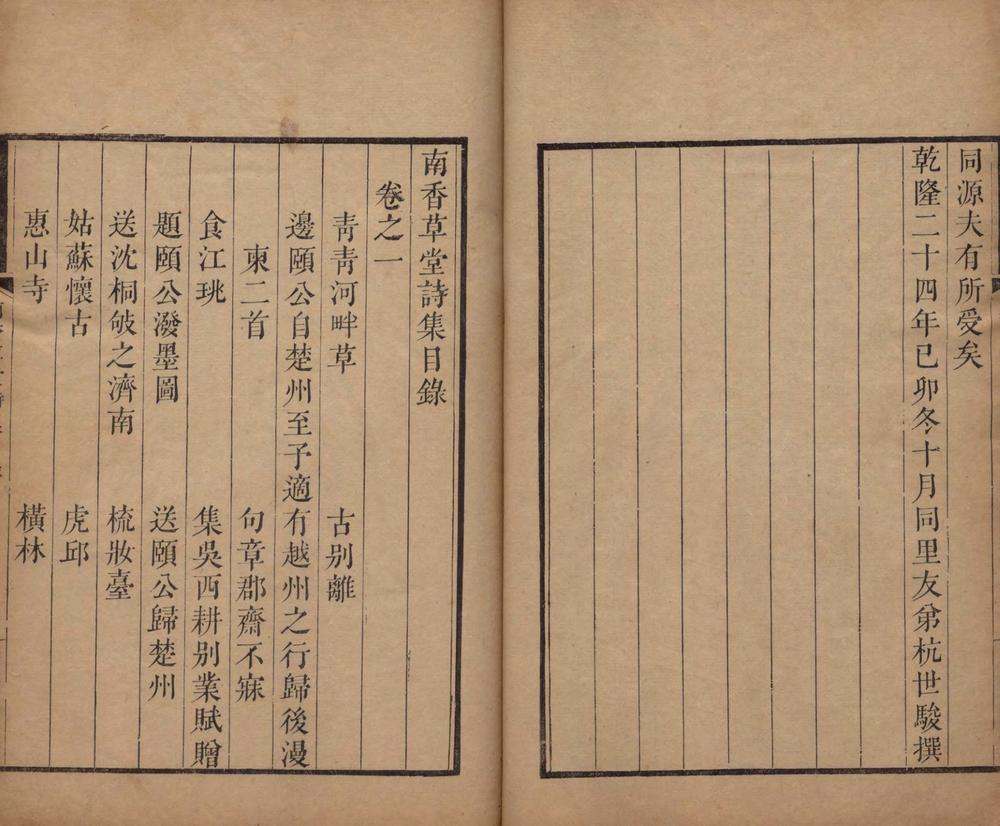 同源夫有所受矣
乾隆二十四年已卯冬十月同里友弟杭世駿撰
南香草堂詩集目錄
卷之一
靑靑河畔草　古別離
邊頤公自楚州至予適有越州之行歸後漫
柬二首　句章郡齋不寐
食江珧　集吳西耕別業賦贈
題頤公潑墨圖　送頤公歸楚州
送沈桐㪇之濟南　梳妝臺
姑蘇懷古　虎邱
惠山寺　橫林